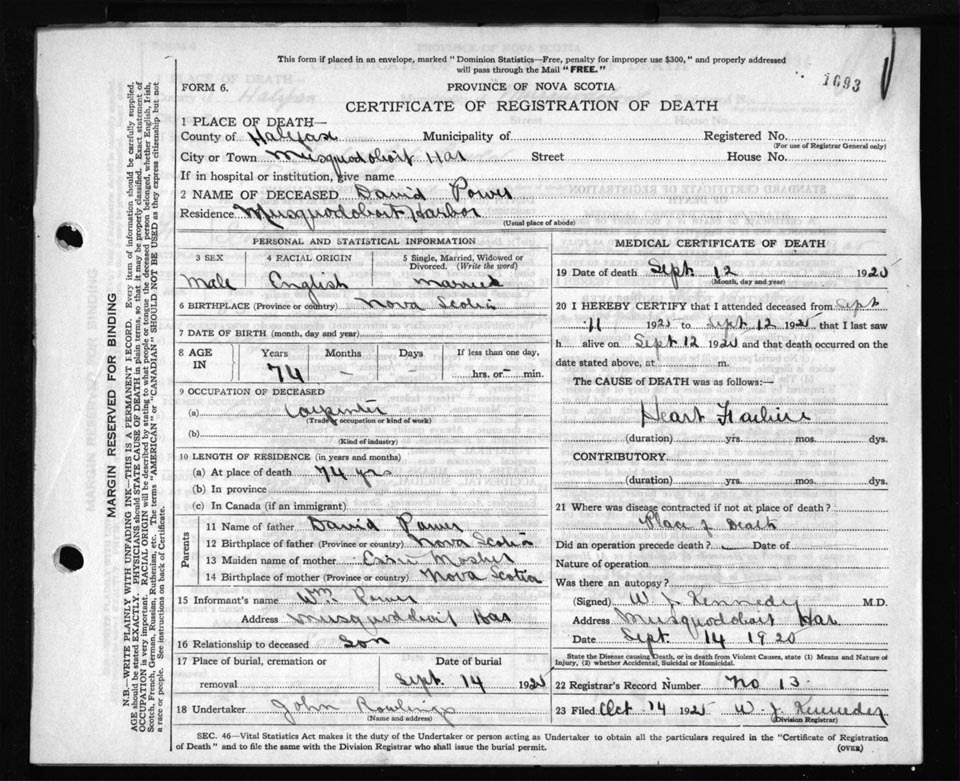 This form if placed in an envelope, marked "Dominion Statistics—Free, penalty for improper use $300," and properly addressed
will pass through the Mail "FREE."
1693
FORM 6.
PROVINCE OF NOVA SCOTIA
CERTIFICATE OF REGISTRATION OF DEATH
1 PLACE OF DEATH—
County of Halifax Municipality of Registered No.
(For use of Registrar General only)
City or Town Musquodoboit Har Street House No.
If in hospital or institution, give name
2 NAME OF DECEASED David Power
Residence Musquodoboit Harbor
(Usual place of abode)
PERSONAL AND STATISTICAL INFORMATION
3 SEX 4 RACIAL ORIGIN 5 Single, Married, Widowed or
Divorced. (Write the word)
Male English Married
6 BIRTHPLACE (Province or country) Nova Scotia
7 DATE OF BIRTH (month, day and year)
8 AGE IN Years Months Days If less than one day,
74 — — hrs. or – min.
9 OCCUPATION OF DECEASED
(a) Carpenter
(Trade, occupation or kind of work)
(b)
(Kind of industry)
10 LENGTH OF RESIDENCE (in years and months)
(a) At place of death 74 yrs
(b) In province
(c) In Canada (if an immigrant)
Parents
11 Name of father David Power
12 Birthplace of father (Province or country) Nova Scotia
13 Maiden name of mother
14 Birthplace of mother (Province or country) Nova Scotia
15 Informant's name Wm. Power
Address Musquodoboit Har
16 Relationship to deceased Son
17 Place of burial, cremation or Date of burial
removal Sept. 14 192
18 Undertaker John Rowlings
(Name and address)
MEDICAL CERTIFICATE OF DEATH
19 Date of death Sept 12 192
(Month, day and year)
20 I HEREBY CERTIFY that I attended deceased from Sept
11 192 to Sept 12 192 that I last saw
h alive on Sept 12 192 and that death occurred on the
date stated above, at m.
The CAUSE OF DEATH was as follows:—
Heart Failure
(duration) yrs. mos. dys.
CONTRIBUTORY
(duration) yrs. mos. dys.
21 Where was disease contracted if not at place of death?
Place of Death
Did an operation precede death? Date of
Nature of operation
Was there an autopsy?
(Signed) W J Kennedy M.D.
Address Musquodoboit Har
Date Sept. 14 192
State the Disease causing Death, or in death from Violent Causes, state (1) Means and Nature of
Injury, (2) whether Accidental, Suicidal or Homicidal.
22 Registrar's Record Number No 13
23 Filed Oct 14 192 W. J. Kennedy
(Division Registrar)
SEC. 46—Vital Statistics Act makes it the duty of the Undertaker or person acting as Undertaker to obtain all the particulars required in the "Certificate of Registration
of Death" and to file the same with the Division Registrar who shall issue the burial permit.
(OVER)
MARGIN RESERVED FOR BINDING
N.B.—WRITE PLAINLY WITH UNFADING INK—THIS IS A PERMANENT RECORD. Every item of information should be carefully supplied.
AGE should be stated EXACTLY. PHYSICIANS should STATE CAUSE OF DEATH in plain terms, so that it may be properly classified. Exact statement of
OCCUPATION is very important. RACIAL ORIGIN will be described by stating to what people or tongue the deceased person belonged, whether English, Irish,
Scotch, French, German, Russian, Ruthenian, etc. The terms "AMERICAN" or "CANADIAN" SHOULD NOT BE USED as they express citizenship but not
a race or people. See instructions on back of Certificate.